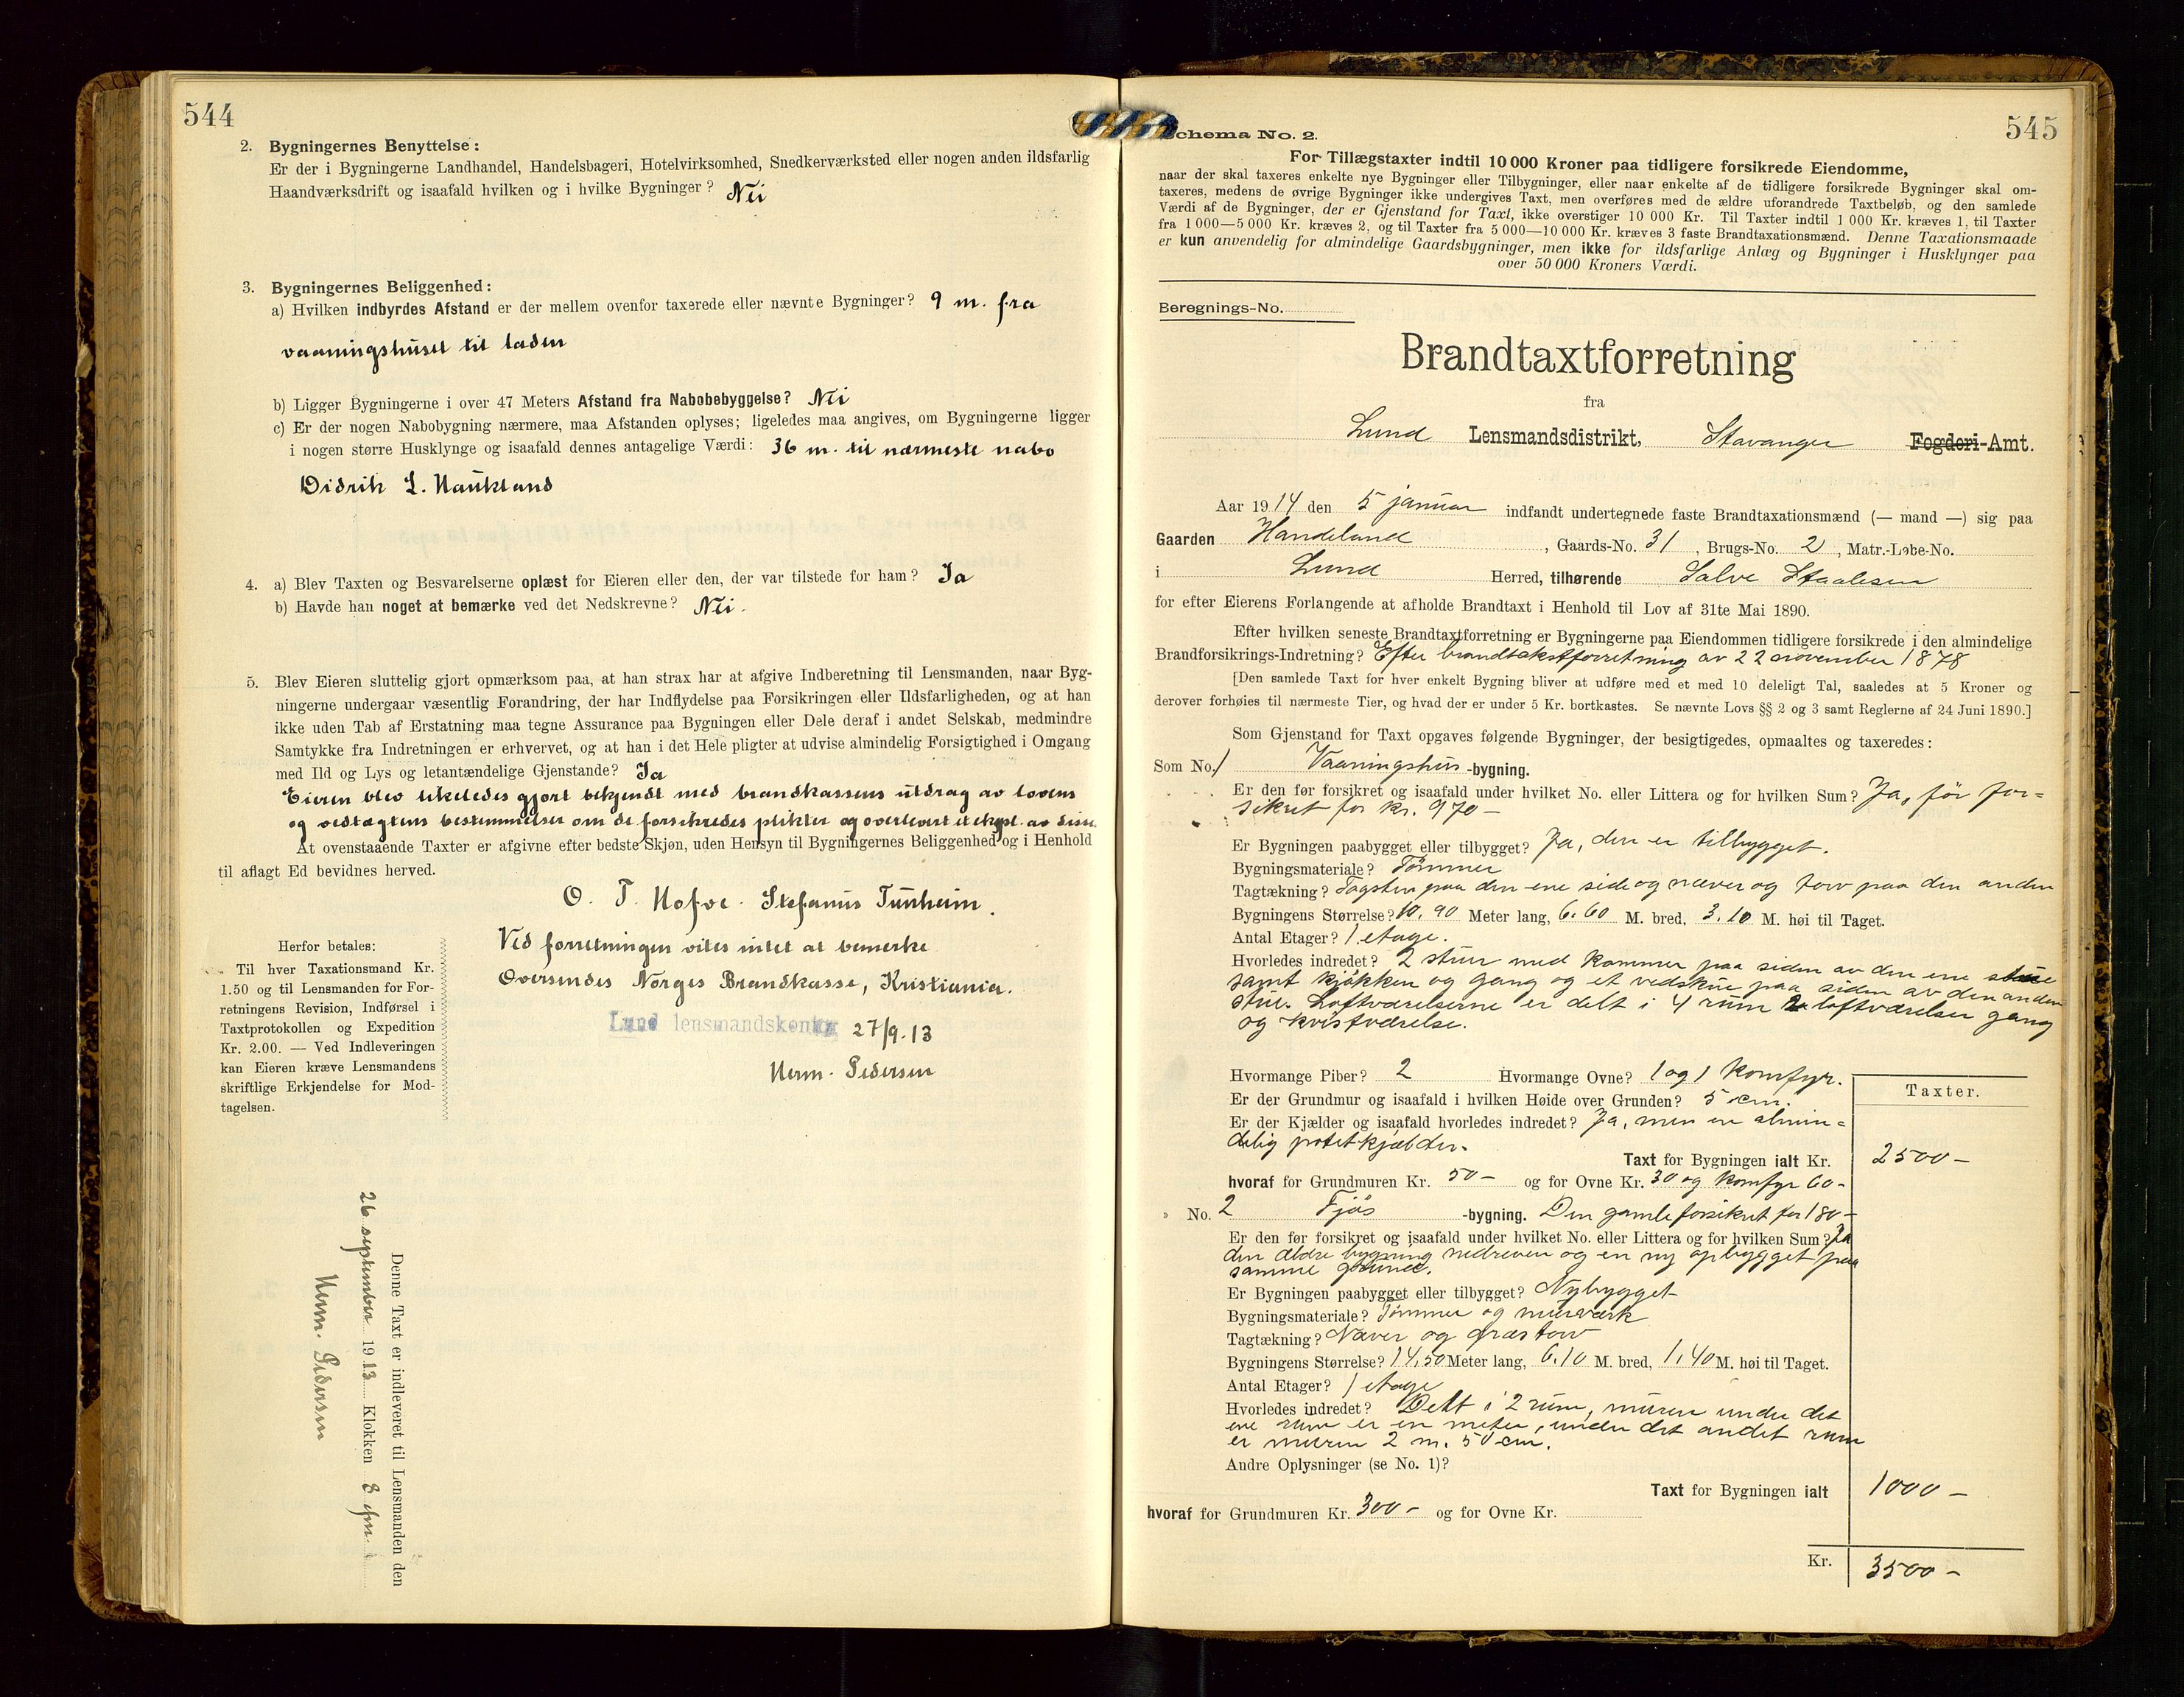 544
2. Bygningernes Benyttelse:
Er der i Bygningerne Landhandel, Handelsbageri, Hotelvirksomhed, Snedkerværksted eller nogen anden ildsfarlig
Haandværksdrift og isaafald hvilken og i hvilke Bygninger? Nei
3. Bygningernes Beliggenhed:
a) Hvilken indbyrdes Afstand er der mellem ovenfor taxerede eller nævnte Bygninger? 9 m. fra
vaaningshuset til laden
b) Ligger Bygningerne i over 47 Meters Afstand fra Nabobebyggelse? Nei
c) Er der nogen Nabobygning nærmere, maa Afstanden oplyses; ligeledes maa angives, om Bygningerne ligger
i nogen større Husklynge og isaafald dennes antagelige Værdi: 36 m. til nærmeste nabo
Didrik L. Haukland
4. a) Blev Taxten og Besvarelserne oplæst for Eieren eller den, der var tilstede for ham? Ja
b) Havde han noget at bemærke ved det Nedskrevne? Nei.
5. Blev Eieren sluttelig gjort opmærksom paa, at han strax har at afgive Indberetning til Lensmanden, naar Byg-
ningerne undergaar væsentlig Forandring, der har Indflydelse paa Forsikringen eller Ildsfarligheden, og at han
ikke uden Tab af Erstatning maa tegne Assurance paa Bygningen eller Dele deraf i andet Selskab, medmindre
Samtykke fra Indretningen er erhvervet, og at han i det Hele pligter at udvise almindelig Forsigtighed i Omgang
med Ild og Lys og letantændelige Gjenstande? Ja
Eieren blev likeledes gjort bekjendt med brandkassens utdrag av lovens
og vedtægtens bestemmelser om de forsikredes plikter og overlevert et ekspl. av disse.
At ovenstaaende Taxter er afgivne efter bedste Skjøn, uden Hensyn til Bygningernes Beliggenhed og i Henhold
til aflagt Ed bevidnes herved.
O. T. Hofve. Stefanus Tunheim.
Herfor betales:
Til hver Taxationsmand Kr.
1.50 og til Lensmanden for For-
retningens Revision, Indførsel i
Taxtprotokollen og Expedition
Kr. 2.00. — Ved Indleveringen
kan Eieren kræve Lensmandens
skriftlige Erkjendelse for Mod-
tagelsen.
Ved forretningen vites intet at bemerke
Oversendes Norges Brandkasse, Kristiania.
Lund lensmandskontor 27/9.13
Herm. Pedersen
Denne Taxt er indleveret til Lensmanden den
26 september 1913 Klokken 8 fm
Herm. Pedersen
545
Schema No. 2.
For Tillægstaxter indtil 10 000 Kroner paa tidligere forsikrede Eiendomme,
naar der skal taxeres enkelte nye Bygninger eller Tilbygninger, eller naar enkelte af de tidligere forsikrede Bygninger skal om-
taxeres, medens de øvrige Bygninger ikke undergives Taxt, men overføres med de ældre uforandrede Taxtbeløb, og den samlede
Værdi af de Bygninger, der er Gjenstand for Taxt, ikke overstiger 10 000 Kr. Til Taxter indtil 1 000 Kr. kræves 1, til Taxter
fra 1 000—5 000 Kr. kræves 2, og til Taxter fra 5 000—10 000 Kr. kræves 3 faste Brandtaxationsmænd. Denne Taxationsmaade
er kun anvendelig for almindelige Gaardsbygninger, men ikke for ildsfarlige Anlæg og Bygninger i Husklynger paa
over 50 000 Kroners Værdi.
Beregnings-No.
Brandtaxtforretning
fra
Lund Lensmandsdistrikt, Stavanger Fogderi-Amt.
Aar 1914 den 5 januar indfandt undertegnede faste Brandtaxationsmænd (— mand —) sig paa
Gaarden Handeland, Gaards-No. 31, Brugs-No. 2, Matr.-Løbe-No.
i Lund Herred, tilhørende Salve Staalesen
for efter Eierens Forlangende at afholde Brandtaxt i Henhold til Lov af 31te Mai 1890.
Efter hvilken seneste Brandtaxtforretning er Bygningerne paa Eiendommen tidligere forsikrede i den almindelige
Brandforsikrings-Indretning? Efter brandtakstforretning av 22 november 1878
[Den samlede Taxt for hver enkelt Bygning bliver at udføre med et med 10 deleligt Tal, saaledes at 5 Kroner og
derover forhøies til nærmeste Tier, og hvad der er under 5 Kr. bortkastes. Se nævnte Lovs §§ 2 og 3 samt Reglerne af 24 Juni 1890.]
Som Gjenstand for Taxt opgaves følgende Bygninger, der besigtigedes, opmaaltes og taxeredes:
Som No. 1 Vaaningshus-bygning.
Er den før forsikret og isaafald under hvilket No. eller Littera og for hvilken Sum? Ja, før for=
sikret for kr. 970 —
Er Bygningen paabygget eller tilbygget? Ja, den er tilbygget.
Bygningsmateriale? Tømmer
Tagtækning? Tagsten paa den ene side og næver og torv paa den anden
Bygningens Størrelse? 10,90 Meter lang, 6.60 M. bred, 3.10 M. høi til Taget.
Antal Etager? 1 etage.
Hvorledes indredet? 2 stuer med kammer paa siden av den ene stue
samt kjøkken og gang og et vedskue paa siden av den anden
stue. Loftværelserne er delt i 4 rum 2 loftværelser gang
og kvistværelse.
Hvormange Piber? 2 Hvormange Ovne? 1 og 1 komfyr.
Er der Grundmur og isaafald i hvilken Høide over Grunden? 5 cm.
Er der Kjælder og isaafald hvorledes indredet? Ja, men en almin=
delig potetkjælder.
Taxter.
Taxt for Bygningen ialt Kr. 2500 —
hvoraf for Grundmuren Kr. 50 — og for Ovne Kr. 30 og komfyr 60 -
» No. 2 Fjøs -bygning. Den gamle forsikret for 180 —
Er den før forsikret og isaafald under hvilket No. eller Littera og for hvilken Sum? Ja
den ældre bygning nedreven og en ny opbygget paa
samme grund.
Er Bygningen paabygget eller tilbygget? Nybygget
Bygningsmateriale? Tømmer og murværk
Tagtækning? Næver og græstorv
Bygningens Størrelse? 14,50 Meter lang, 6.10 M. bred, 1,40 M. høi til Taget.
Antal Etager? 1 etage
Hvorledes indredet? Delt i 2 rum, muren under det
ene rum er en meter, under det andet rum
er muren 2 m. 50 cm.
Andre Oplysninger (se No. 1)?
Taxt for Bygningen ialt 1000 —
hvoraf for Grundmuren Kr. 300 — og for Ovne Kr.
Kr. 3500 —